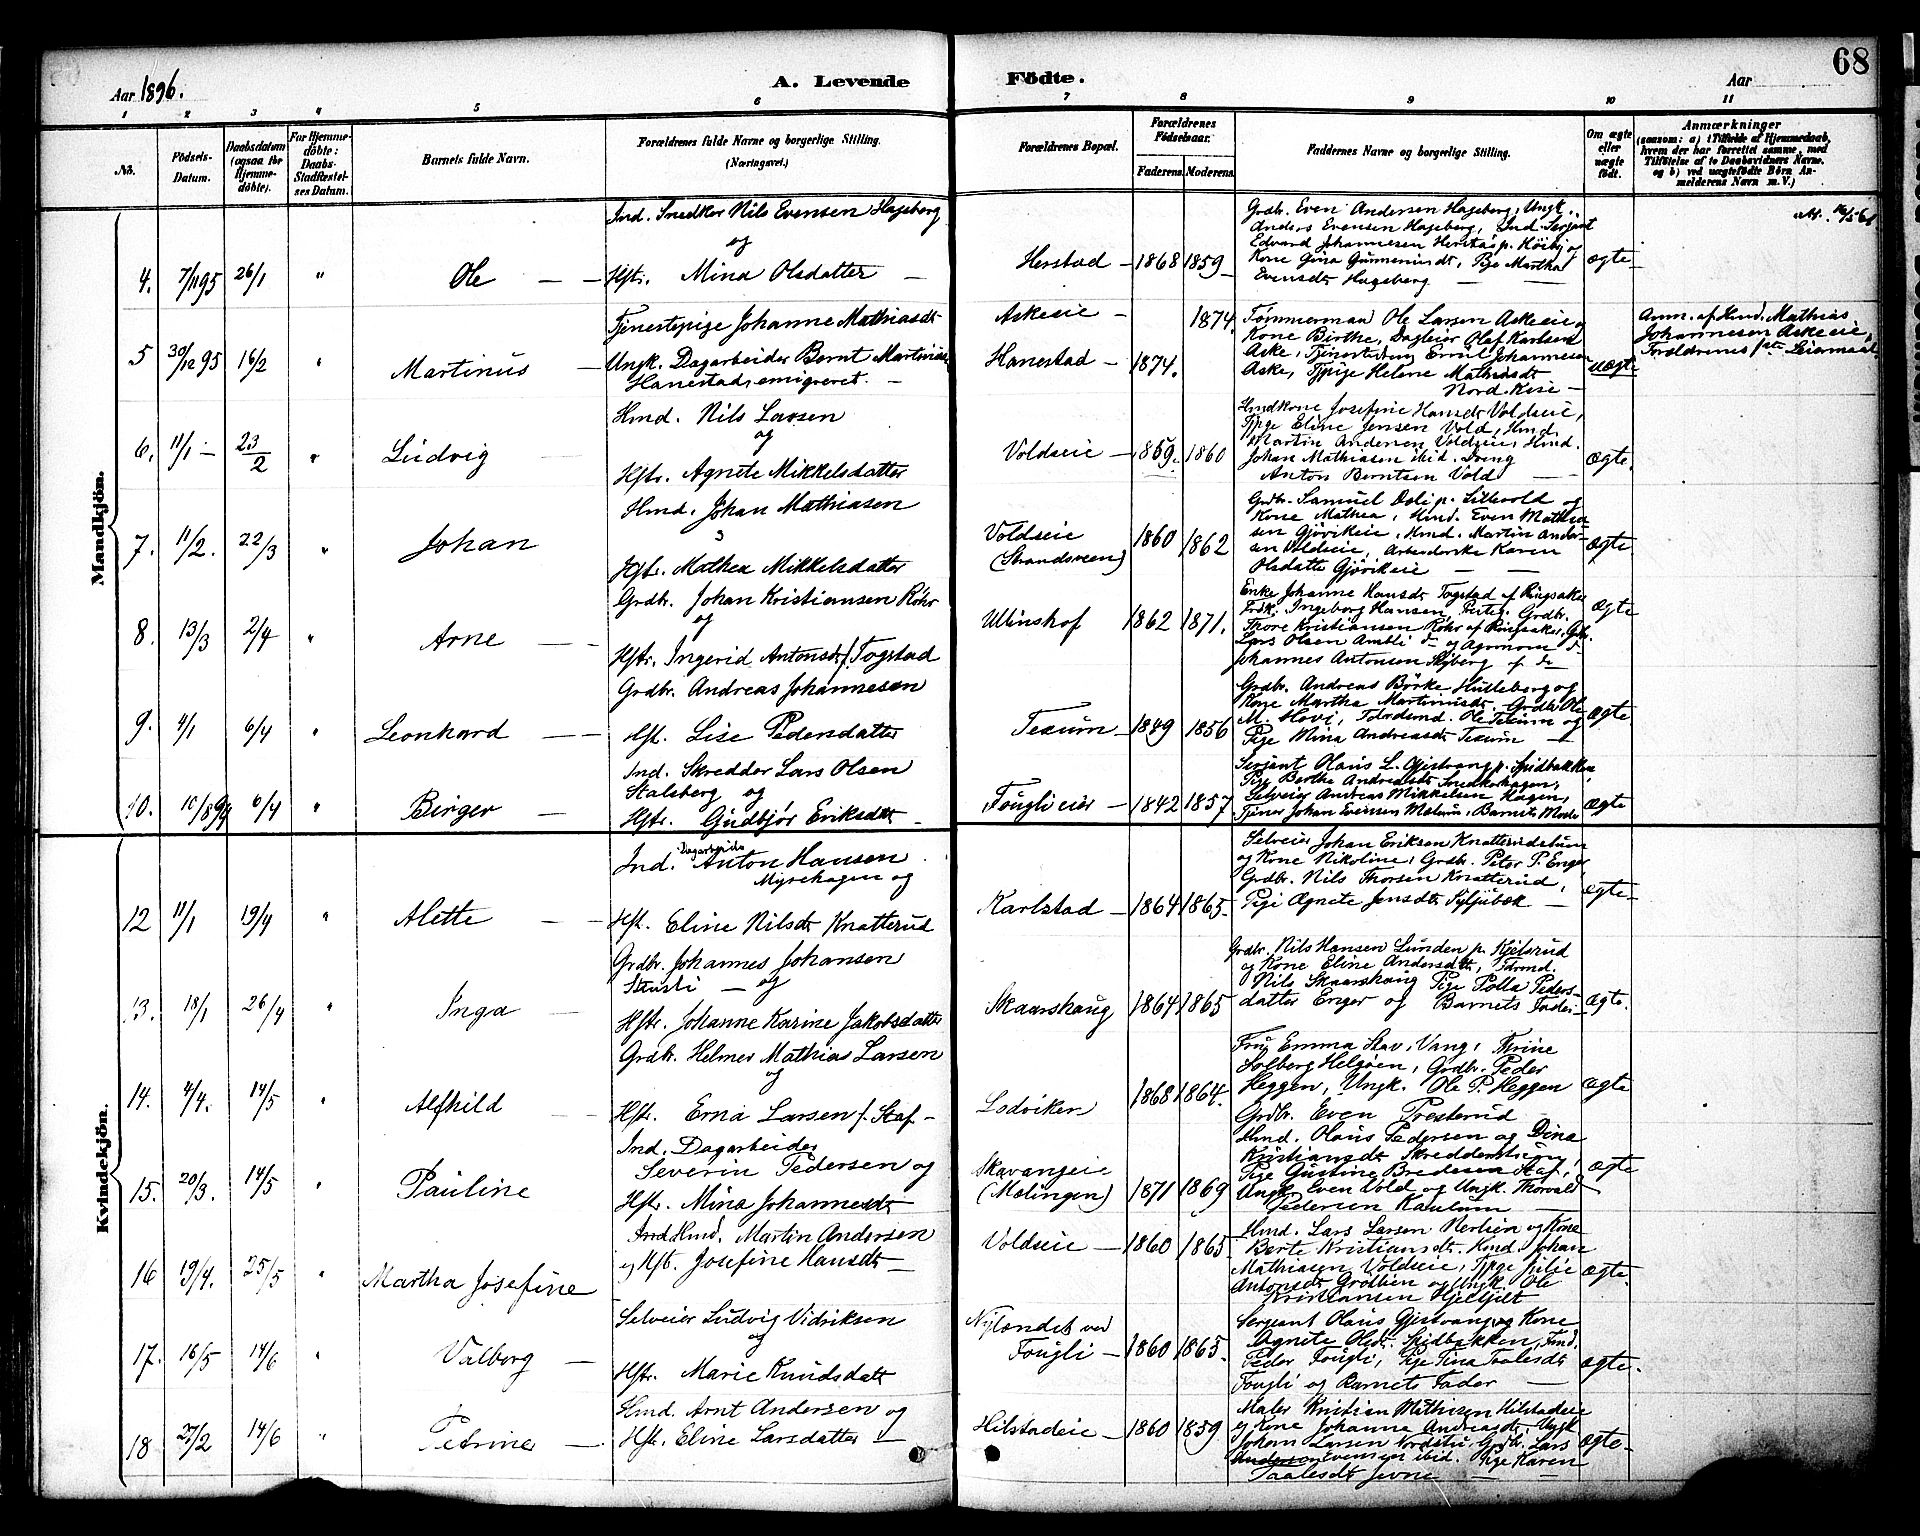 68
Aar 1896.
A. Levende Födte.
Aar
1 2 3 4 5 6 7 8 9 10 11
No. Födsels-Datum. Daabsdatum (ogsaa for Hjemmedöbte). For Hjemmedöbte: Daabs-Stadfæstelses Datum. Barnets fulde Navn. Forældrenes fulde Navne og borgerlige Stilling. (Næringsvei.) Forældrenes Bopæl. Forældrenes Födselsaar. Faderens. Moderens. Faddernes Navne og borgerlige Stilling. Om ægte eller uægte födt. Anmærkninger (saasom: a) i Tilfælde af Hjemmedaab, hvem der har forrettet samme, med Tilföielse af to Daabsvidners Navne, og b) ved uægtefödte Börn Anmelderens Navn m. V.)
Mandkjön.
4. 7/11 95 26/1 " Ole
Ind. Snedker Nils Evensen Hageberg
og
Hstr. Mina Olsdatter
Herstad 1868 1859
Grdb. Even Andersen Hageberg, Ungk.
Anders Evensen Hageberg, Ind. Serjant
Edvard Johannesen Herstad p. Höibj og
Kone Gina Gunnerusdt, Pge Martha
Evensdt Hageberg
ægte
5 30/12 95 16/2 " Martinus
Tjenestepige Johanne Mathiasdt
Ungk. Dagarbeider Bernt Martinius
Hanestad, emigreret.
Askeeie 1874.
Hanestad 1874.
Tømmermand Ole Larsen Askeeie og
Kone Birthe, Dagleier Olaf Karlsen
Aske, Tjenestedreng Emil Johannesen
Aske, Tjpige Helene Mathiasdt
Nord. Kise
uægte
Anm. af Hmd. Mathias
Johannesen Askeeie,
Forældrenes 1ste Leiermaal
6. 11/1 23/2 " Ludvig
Hmd. Nils Larsen
og
Hstr. Agnete Mikkelsdatter
Voldseie 1859. 1860
Hmdkone Josefine Hansdt Voldseie,
Tjpge Eline Jensen Vold, Hmd.
Martin Andersen Voldseie, Hmd.
Johan Mathiasen ibid. Dreng
Anton Berntsen Vold
ægte.
7. 11/2. 22/3 " Johan
Hmd. Johan Mathiasen
Hstr. Mathea Mikkelsdatter
Voldseie
(Strandsveen) 1860 1862
Grdbr. Samuel Osli p. Lillevold og
Kone Mathea, Hmd. Even Mathia-
sen Gjövikeie, Hmd. Martin Ander-
sen Voldseie, Arbeiderske Karen
Olsdatter Gjövikeie
ægte
8. 13/3 2/4 " Arne
Grdbr. Johan Kristiansen Röhr
og
Hstr. Ingerid Antonsdt f. Togstad
Ullinshof 1862 1871.
Enke Johanne Hansdt Togstad af Ringsaker
Frøk. Ingeborg Hansen Presteg. Grdbr.
Thore Kristiansen Röhr af Ringsaker, Gdb.
Lars Olsen Ambli do og Agronom do
Johannes Antonsen Skyberg af do
ægte
9. 4/1 6/4 " Leonhard
Grdbr. Andreas Johannesen
Hst. Lise Pedersdatter
Texum 1849 1856
Grdbr. Andreas Börke Hulleborg og
Kone Martha Martinusdt, Grdbr. Ole
M. Hovi, Fdrdsmd. Ole Texum og
Pige Mina Andreasdt Texum
ægte
10. 10/8 94 6/4 " Birger
Ind. Skredder Lars Olsen
Stalsberg og
Hstr. Gudbjör Eriksdatt
Fougli eier 1842 1857
Serjant Olaus L. Gjestvang p. Spidbakken
Pige Berthe Andreasdt Snedkerhagen,
Selveier Andreas Mikkelsen Hagen,
Tjener Johan Evensen Mælum, Barnets Moder
ægte
Kvindekjön.
12 11/1 19/4 " Alette
Ind. Dagarbeider Anton Hansen
Myrehagen og
Hst. Eline Nilsdt Knatterud
Karlstad 1864 1865.
Selveier Johan Eriksen Knatterudstuen
og Kone Nikoline, Grdbr. Peter P. Enger
Grdbr. Nils Thorsen Knatterud,
Pige Agnete Jensdt Syljubæk
ægte
13. 18/1 26/4 " Inga
Grdbr. Johannes Johansen
og
Hstr. Johanne Karine Jakobsdatter
Skaarshaug 1864 1865
Grdbr. Nils Hansen Lunden p. Kjelsrud
og Kone Eline Andersdtt, Fdrmd.
Nils Skaarshaug Pige Polla Peders-
datter Enger og Barnets Fader
ægte.
14. 4/4. 14/5 " Alfhild
Grdbr. Helmer Mathias Larsen
og
Hstr. Erna Larsen f. Staf
Lodviken 1868 1864.
Frue Emma Stav, Vang, Thrine
Solberg Helgöen, Grdbr. Peder
Heggen, Ungk. Ole P. Heggen
Grdbr. Even Presterud
ægte
15. 20/3. 14/5 " Pauline
Ind. Dagarbeider
Severin Pedersen og
Hstr. Mina Johannesdt
Skavangeie
(Mælingen) 1871 1869
Hmd. Olaus Pedersen og Dina
Kristiansdt Skredderstuen,
Pige Gustine Bredesen Staf,
Ungk. Even Vold og Ungk. Thorvald
Pedersen Kaulum
ægte
16 19/4. 25/5 " Martha Josefine
Ind. Hmd. Martin Andersen
og Hst. Josefine Hansdt
Voldseie 1860 1865.
Hmd. Lars Larsen Nerlien og Kone
Berte Kristiansdt. Hmd. Johan
Mathiasen Voldseie, Tjpge Julie
Antonsdt Grötlien og Ungk. Ole
Kristiansen Hjelhjelt
ægte.
17. 16/5 14/6 " Valborg
Selveier Ludvig Vidriksen
og
Hstr. Marie Knudsdatt
Nylændet ved
Fougli 1860 1865.
Sergeant Olaus Gjestvang og Kone
Agnete Olsdt. Spidbakken, Hmd.
Peder Fougli, Pige Tina Taalesdt
Fougli og Barnets Fader
ægte.
18 27/2 14/6 " Petrine
Hmd. Arnt Andersen og
Hstr. Eline Larsdatter
Hilstadeie 1860 1859
Maler Kristian Mathisen Hilstadeie
og Kone Johanna Andreasdt, Ungk
Johan Larsen Nordstu, Grdbr. Lars
Evensen ibid. Pige Karen
Taalesdt Jevne
ægte